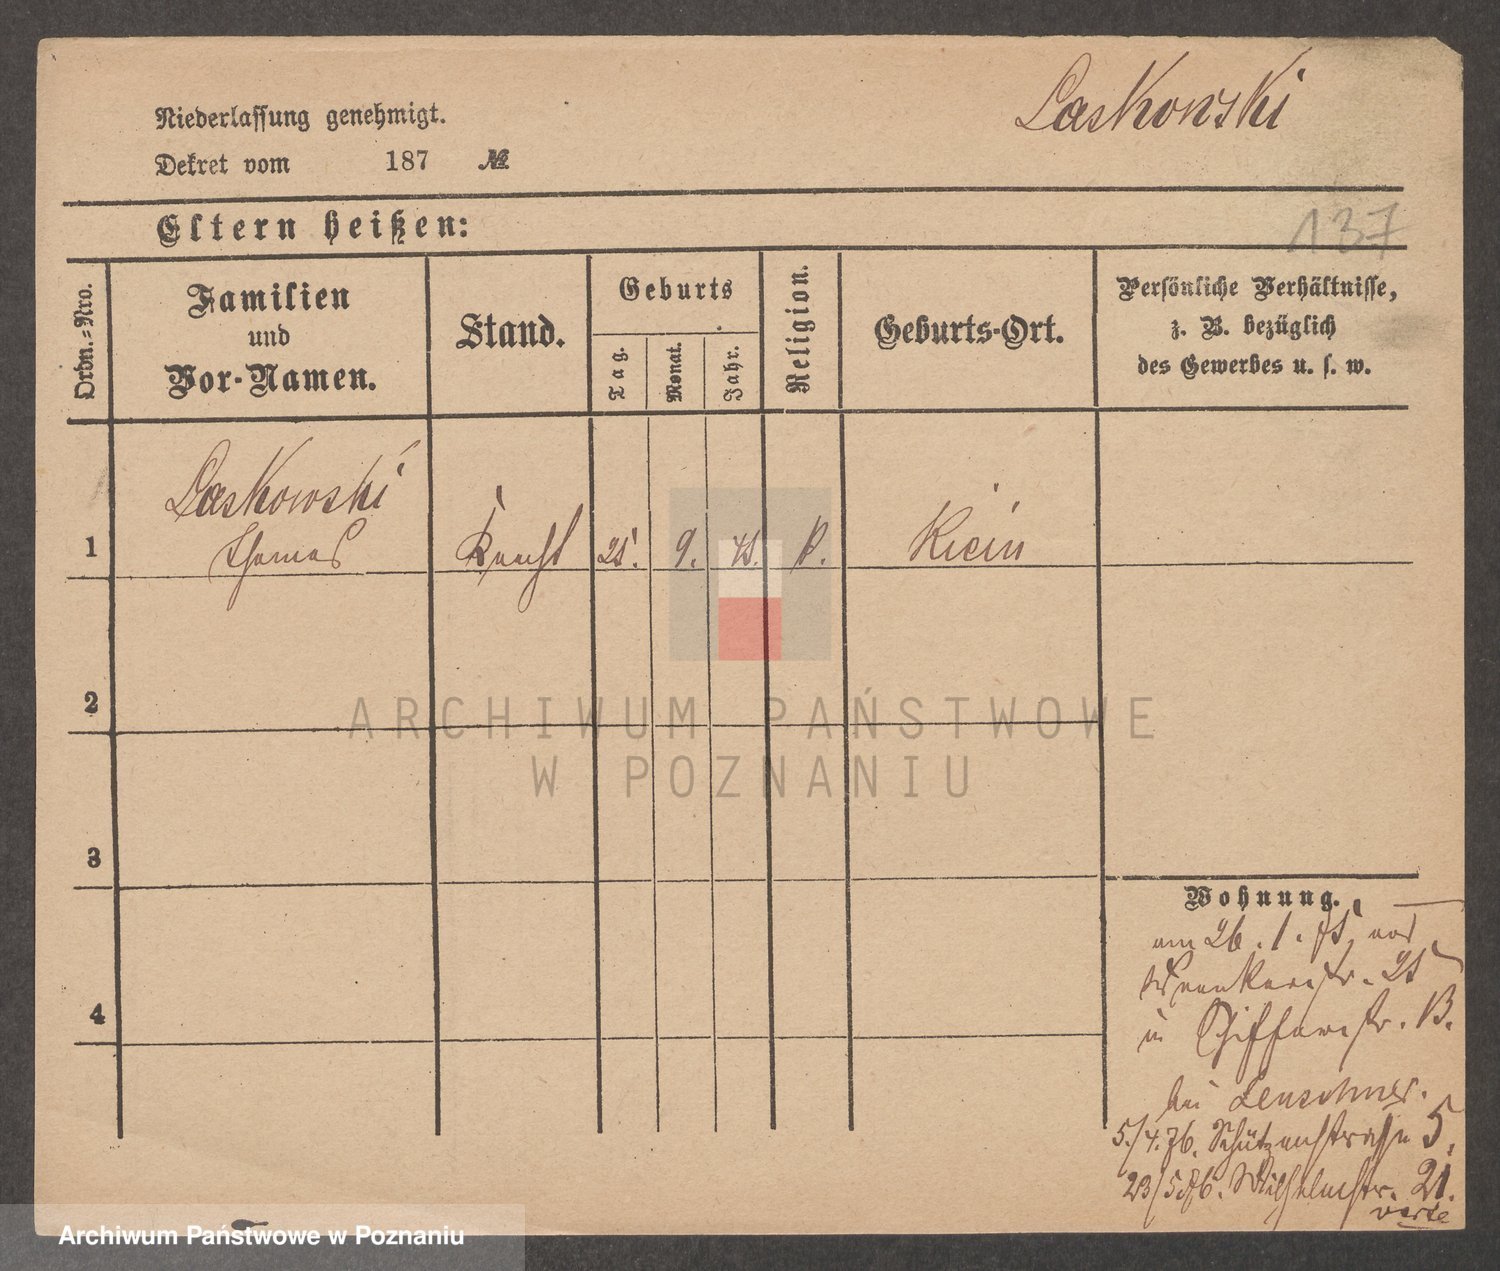 Laskowski
Niederlassung genehmigt.
Dekret vom 187 №
137
Eltern heißen:
Ordn.-Nro.
Familien
und
Vor-Namen.
Stand.
Geburts
Tag.
Monat.
Jahr.
Religion.
Geburts-Ort.
Persönliche Verhältnisse,
z. B. bezüglich
des Gewerbes u. s. w.
Laskowski
1 Thomas Knecht 25. 9. k. Kicin
2
3
4
Wohnung.
am 26. 1. 75
25
in Schifferstr. B.
bei Lenschner.
5./4.76. Schützenstrasse 5.
23/5 76. Wilhelmstr. 21.
verte
ARCHIWUM PAŃSTWOWE
W POZNANIU
Archiwum Państwowe w Poznaniu